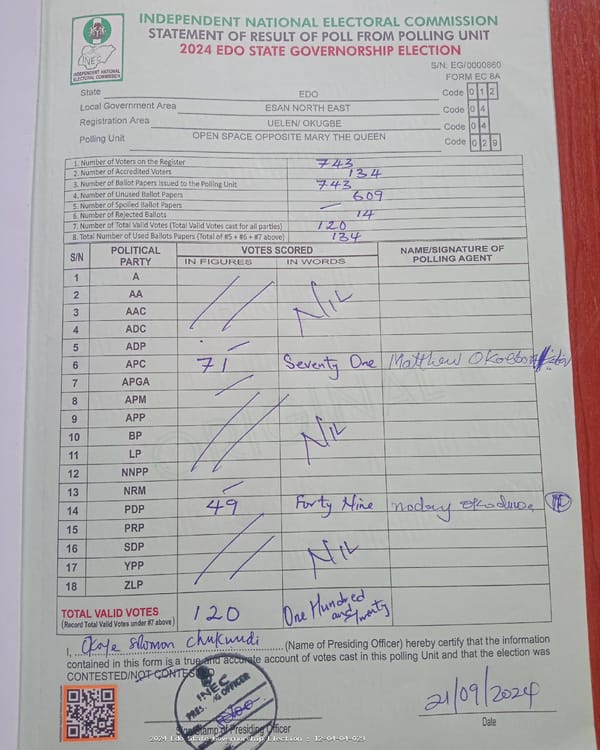 INDEPENDENT NATIONAL ELECTORAL COMMISSION
STATEMENT OF RESULT OF POLL FROM POLLING UNIT
2024 EDO STATE GOVERNORSHIP ELECTION
INEC
INDEPENDENT NATIONAL
ELECTORAL COMMISSION
S/N: EG/0000860
FORM EC 8A
State EDO Code 0 1 2
Local Government Area ESAN NORTH EAST Code 0 4
Registration Area UELEN/ OKUGBE Code 0 4
Polling Unit OPEN SPACE OPPOSITE MARY THE QUEEN Code 0 2 9
1. Number of Voters on the Register 743
2. Number of Accredited Voters 134
3. Number of Ballot Papers Issued to the Polling Unit 743
4. Number of Unused Ballot Papers 609
5. Number of Spoiled Ballot Papers —
6. Number of Rejected Ballots 14
7. Number of Total Valid Votes (Total Valid Votes cast for all parties) 120
8. Total Number of Used Ballots Papers (Total of #5 + #6 + #7 above) 134
S/N POLITICAL PARTY VOTES SCORED NAME/SIGNATURE OF POLLING AGENT
IN FIGURES IN WORDS
1 A
2 AA
3 AAC NIL
4 ADC
5 ADP —
6 APC 71 Seventy One Matthew
7 APGA —
8 APM
9 APP
10 BP NIL
11 LP
12 NNPP
13 NRM —
14 PDP 49 Forty Nine
15 PRP
16 SDP NIL
17 YPP
18 ZLP
TOTAL VALID VOTES 120 One Hundred and Twenty
(Record Total Valid Votes under #7 above)
I, Okoye Solomon Chukwudi (Name of Presiding Officer) hereby certify that the information
contained in this form is a true and accurate account of votes cast in this polling Unit and that the election was
CONTESTED/NOT CONTESTED
INEC
PRES. OFFICER
21/09/2024
Stamp of Presiding Officer
Date
2024 Edo State Governorship Election : 12-04-04-029